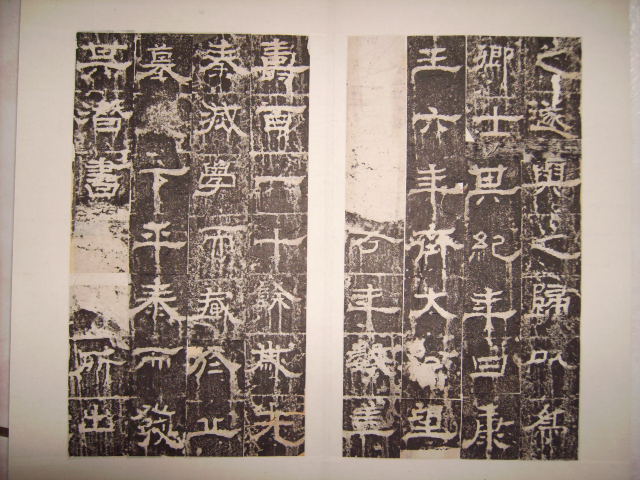 之遂與之歸以為
卿士其紀年曰康
王六年齊太公望
年數蓋
壽百一十餘歲先
秦滅學而藏於丘
墓下平泰而發
其潛書所出